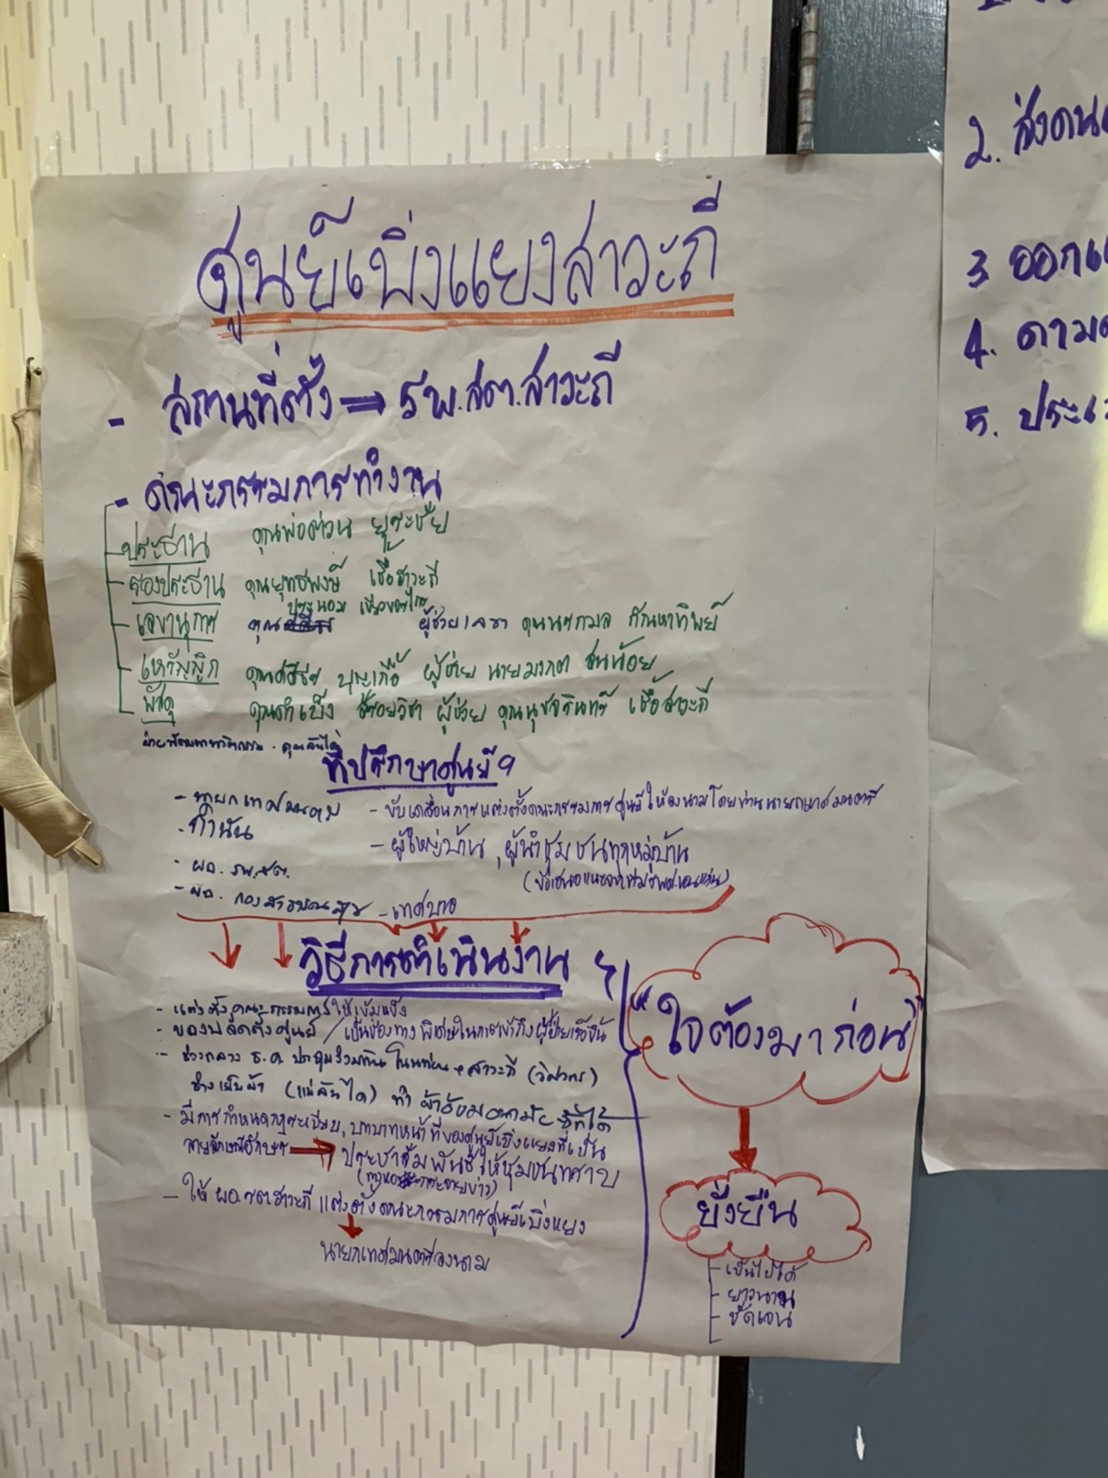 ศูนย์เพิ่งแยงสาวะถี
- สถานที่ตั้ง → รพ.สต.สาวะถี
- คณะกรรมการทำงาน
ประธาน คุณพ่อถ่วน ยุระชัย
รองประธาน คุณยุทธพงษ์ เชื้อสาวะถี
ประนอม
เลขานุการ คุณ ผู้ช่วยเลขา คุณนรกมล กัณหาทิพย์
เหรัญญิก ผู้ช่วย นาย
พัสดุ คุณคำเบ็ง สร้อยวิชา ผู้ช่วย คุณนุชจรินทร์ เชื้อสาวะถี
ที่ปรึกษาศูนย์ฯ
- นายกเทศมนตรี - ขับเคลื่อนการแต่งตั้งคณะกรรมการศูนย์ ให้ลงนามโดยท่านนายกเทศมนตรี
- กำนัน
- ผู้ใหญ่บ้าน, ผู้นำชุมชนทุกหมู่บ้าน
- ผอ. รพ.สต.
- ผอ. กองสาธารณสุข - เทศบาล
วิธีการดำเนินงาน
- แต่งตั้งคณะกรรมการให้เข้มแข็ง
- ของบจัดตั้งศูนย์ / เป็นช่องทางพิเศษในการเข้าถึงผู้ป่วย
- ช่วงกลาง ธ.ค. ประชุมร่วมกัน โนนท่อน + สาวะถี (วิศวกร)
ช่างเย็บผ้า (แม่ลันได) ทำ ผ้าอ้อมอนามัย ซี้ที่ได้
- มีการกำหนดกฎระเบียบ, บทบาทหน้าที่ของศูนย์เพิ่งแยงที่เป็น
ลายลักษณ์อักษร → ประชาสัมพันธ์ให้ชุมชนทราบ
- ให้ ผอ.รพ.สต.สาวะถี แต่งตั้งคณะกรรมการศูนย์เพิ่งแยง
นายกเทศมนตรีลงนาม
"ใจต้องมาก่อน"
ยั่งยืน
- เป็นไปได้
- ยาวนาน
- ชัดเจน
2.
3. ออก
4.
5.